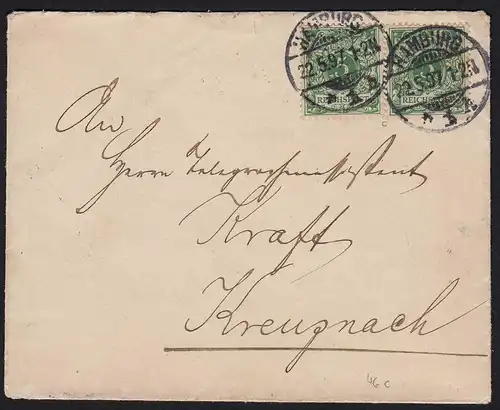 HAMBURG
22.5.97.1-2N
* 1 *
HAMBURG
22.5.97.1-2N
* 1 *
5
REICHSPOST
REICHSPOST
An
Herrn Telegraphenassistent
Kraft
Kreuznach
46 c